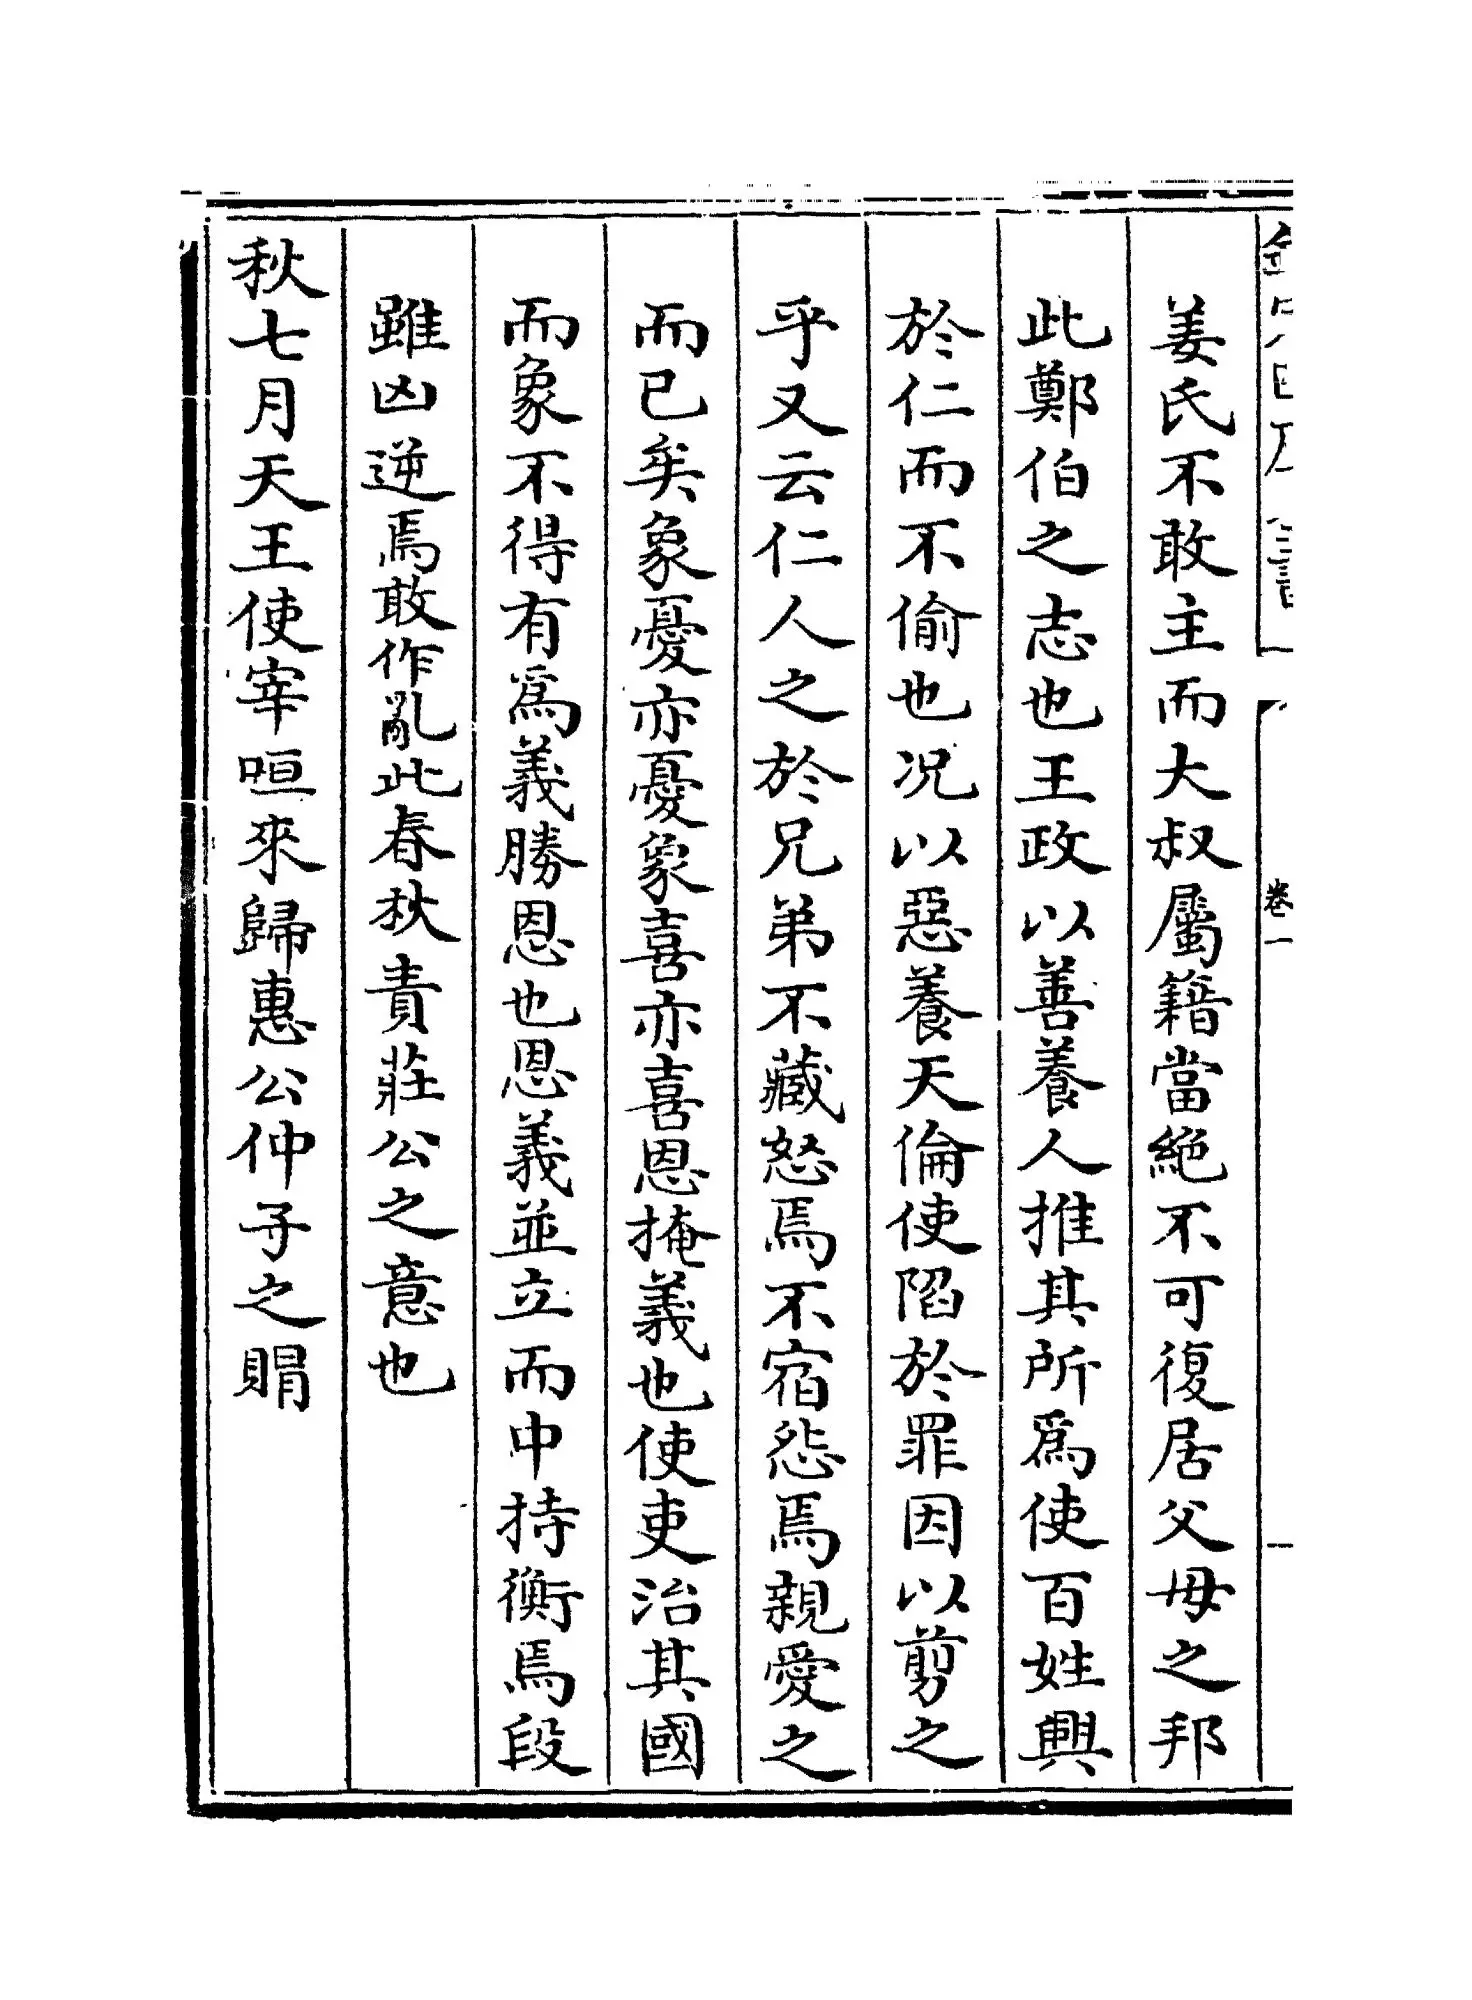 卷一
姜氏不敢主而大叔屬籍當絶不可復居父母之邦
此鄭伯之志也王政以善養人推其所爲使百姓興
於仁而不偷也况以惡養天倫使陷於罪因以剪之
乎又云仁人之於兄弟不藏怒焉不宿怨焉親愛之
而已矣象憂亦憂象喜亦喜恩掩義也使吏治其國
而象不得有爲義勝恩也恩義並立而中持衡焉段
雖凶逆焉敢作亂此春秋責莊公之意也
秋七月天王使宰咺來歸惠公仲子之賵